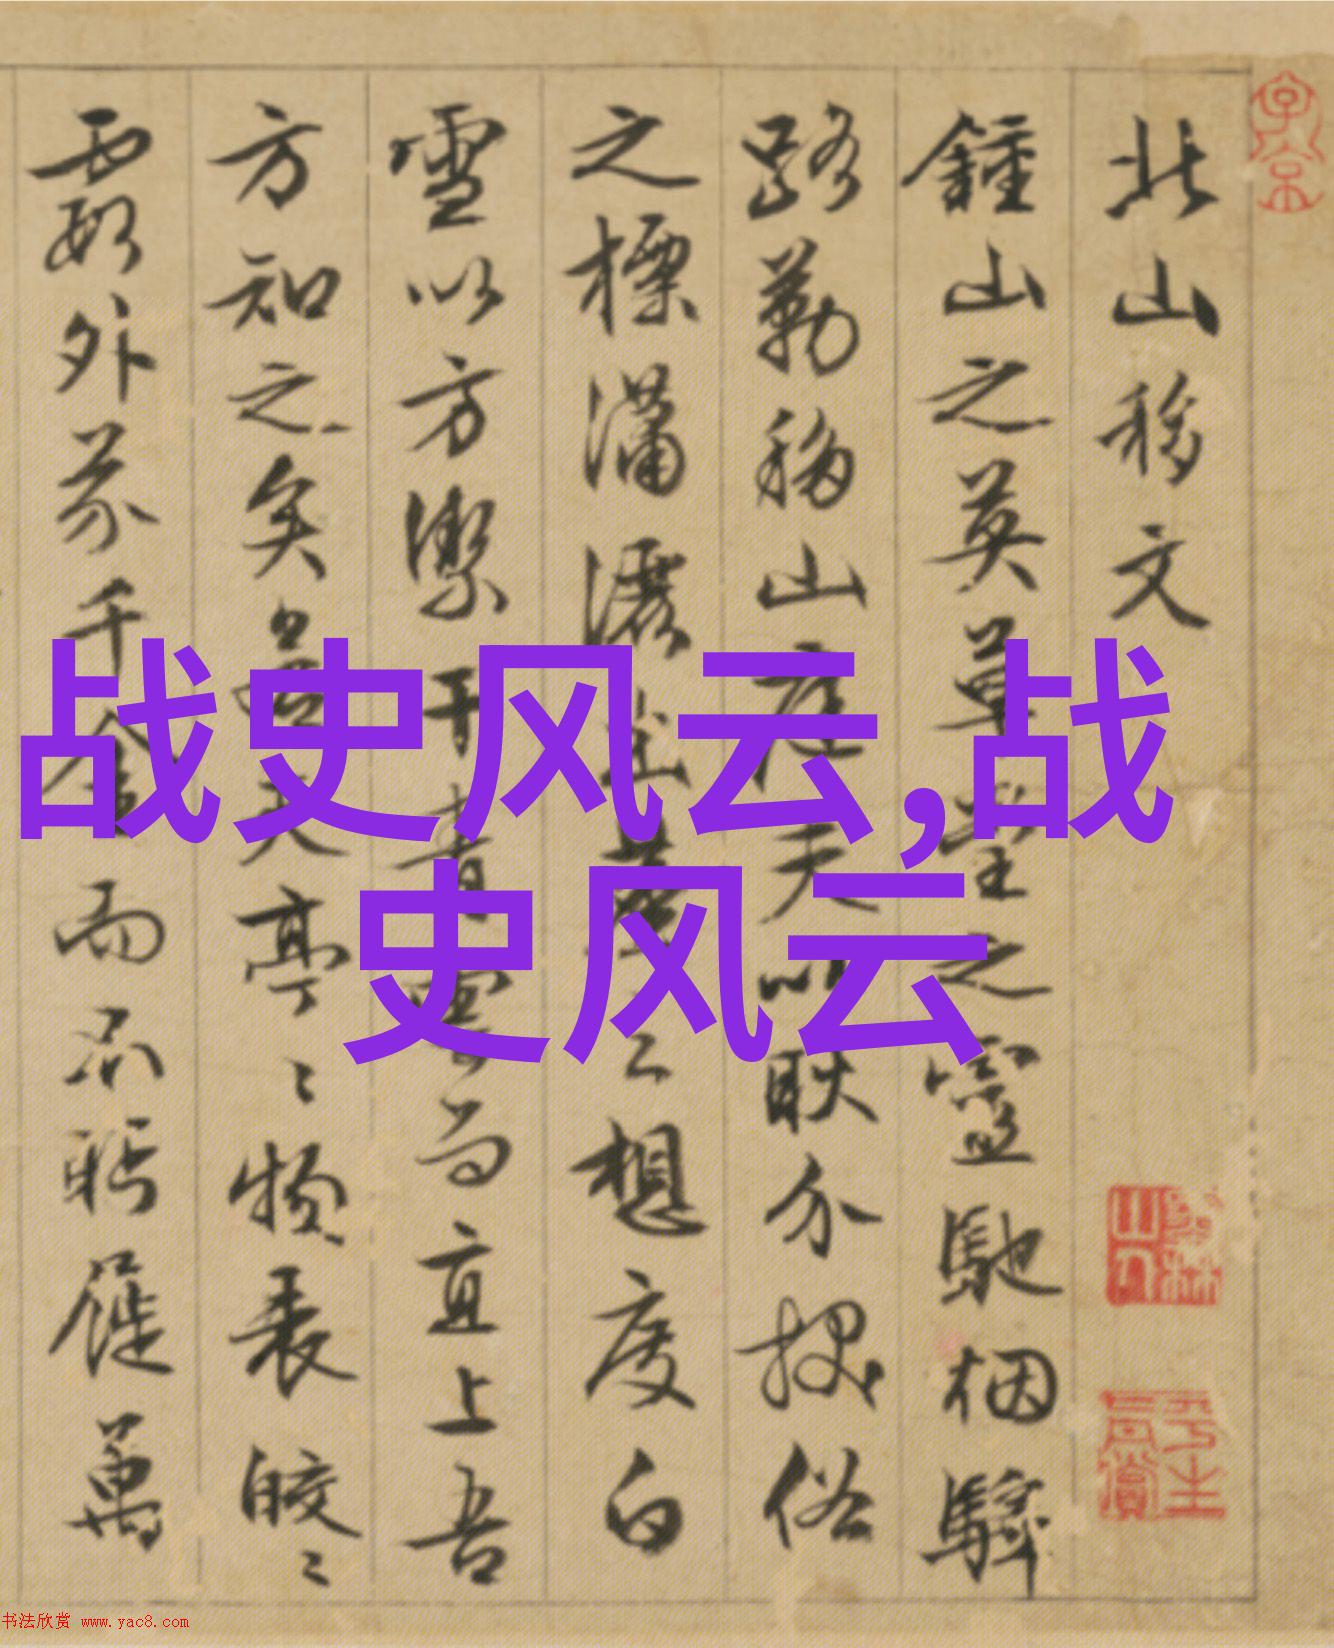 北山移文
鍾山之英草堂之靈馳烟驛
路勒移山庭夫以耿介拔俗
之標瀟灑出塵之想度白
雪以方潔干青雲而直上吾
方知之矣若其亭亭物表皎皎
霞外芥千金而不眄屣萬
战史风云,战
史风云
书法欣赏 www.yac8.com